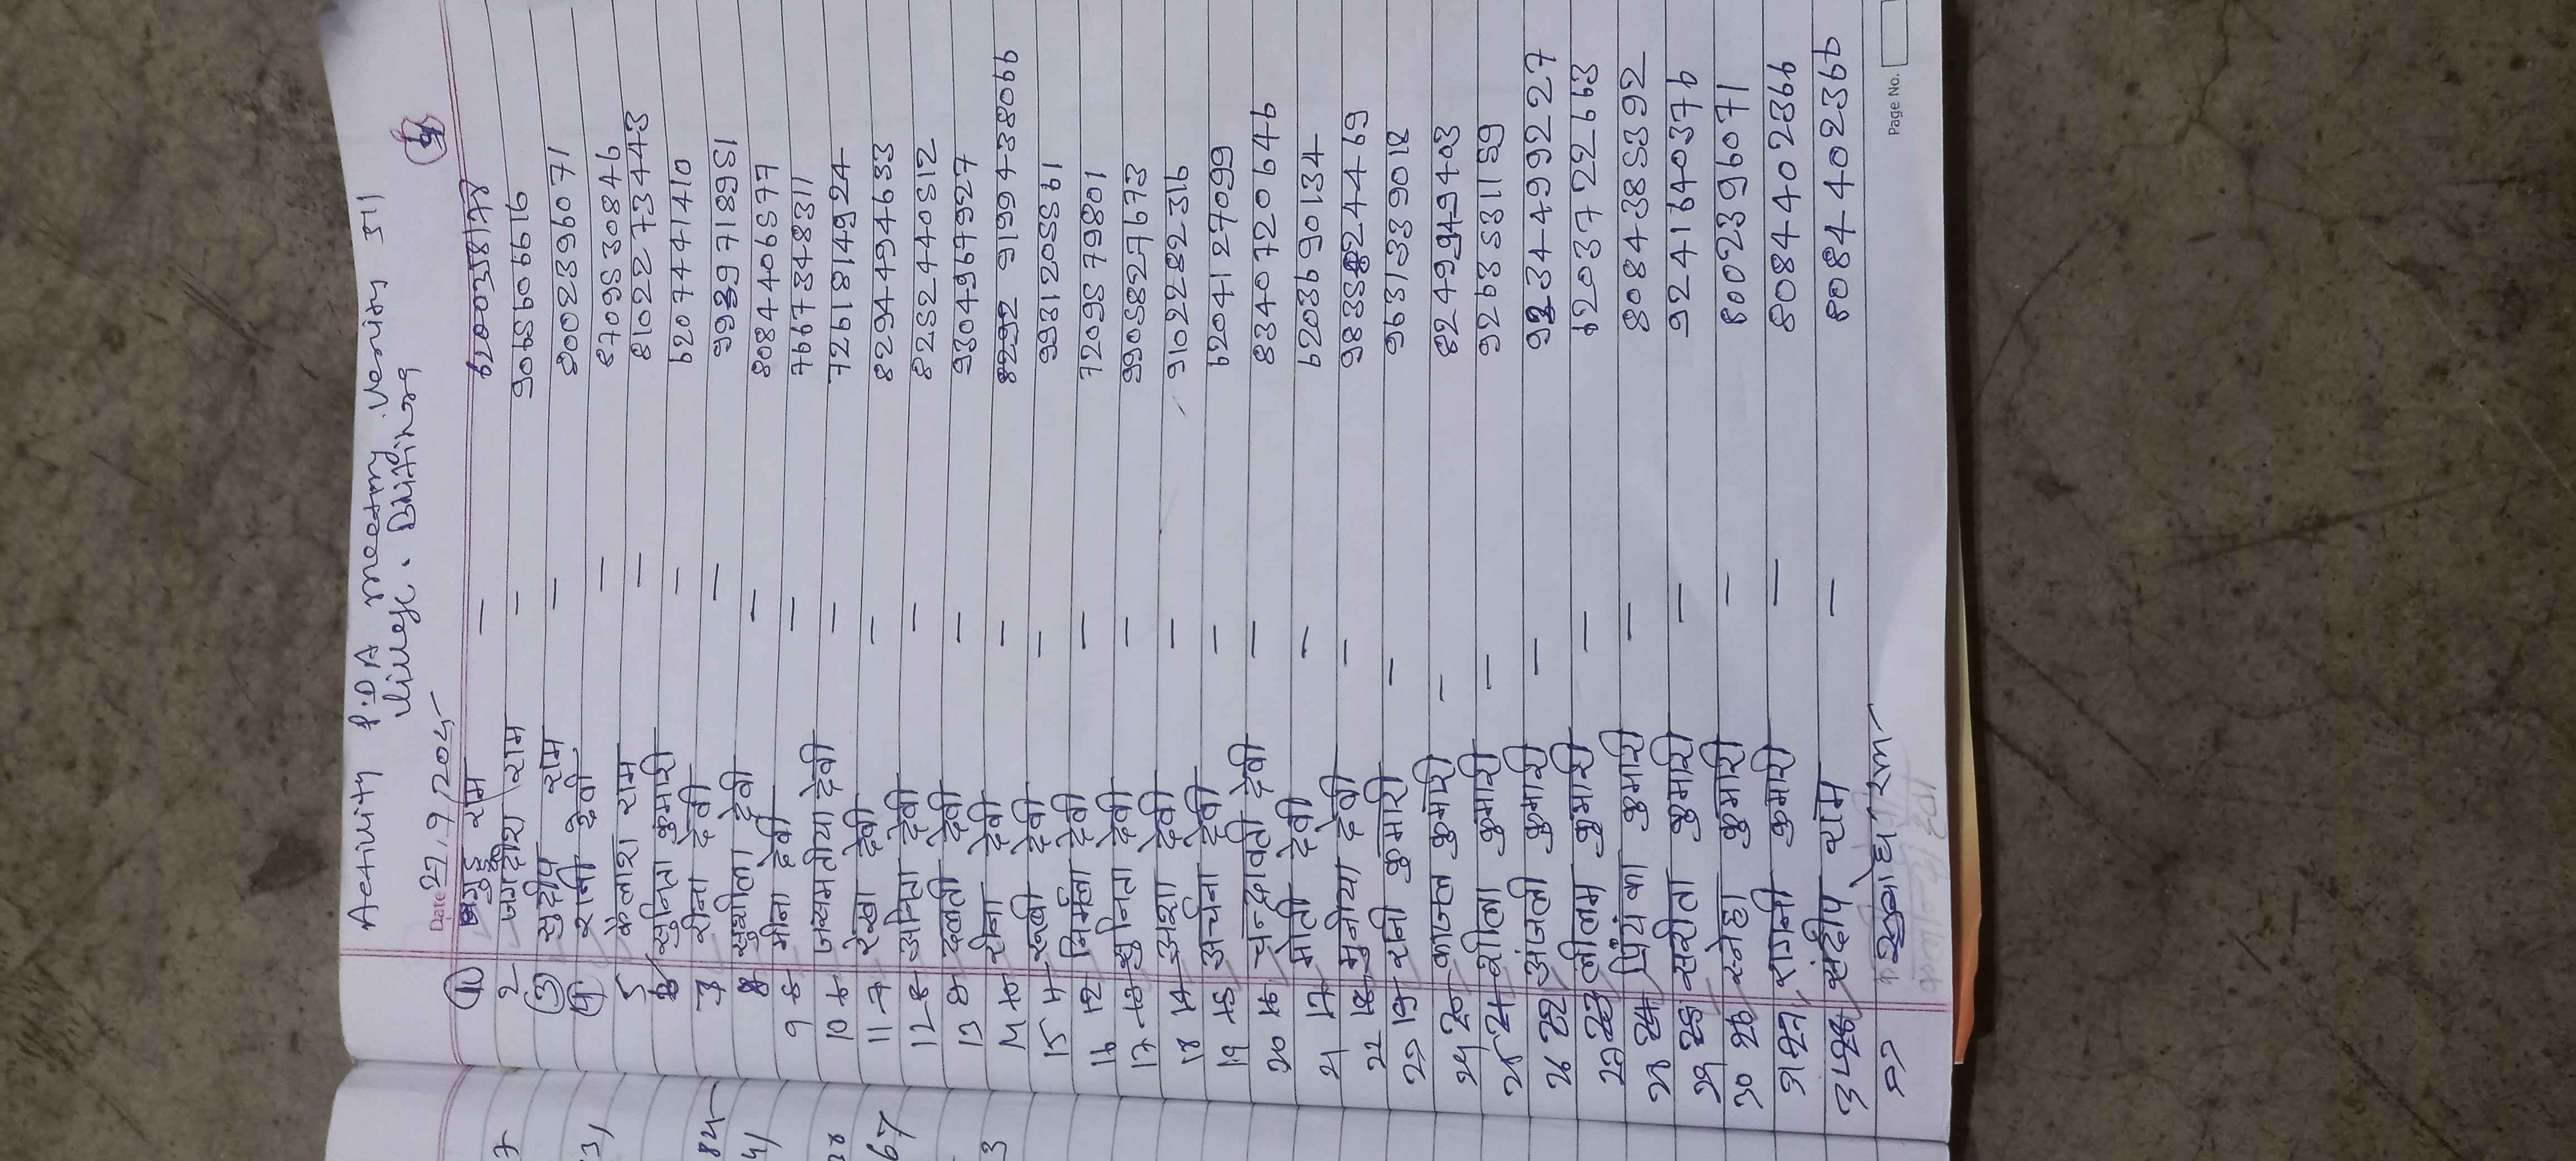 Activity P.D.A meeting
Village.
Date 27/9/2025
(1) राम - 6200358178
2 जगदीश राम - 9065606616
(3) सुदीप राम - 8002396071
(4) रानी देवी - 8709530846
5 कैलाश राम - 8102273443
6 सुनिता कुमारी - 6207441410
7 रीना देवी - 9939718951
8 सुशीला देवी - 8084406577
9 मीना देवी - 7667348311
10 जसमतीया देवी - 7261814924
11 7 रेखा देवी - 8294494633
12 8 अनिता देवी - 8252440512
13 9 ललती देवी - 9304967927
14 10 रीना देवी - 8292 9199438066
15 रूबी देवी - 9931205561
16 12 निर्मला देवी - 7209579801
17 13 सुनिता देवी - 9905827673
18 14 आशा देवी - 9102282316
19 15 अर्चना देवी - 6204127099
20 16 चन्द्रावती देवी - 8340720646
21 17 मोती देवी - 6203690134
22 18 मुनीया देवी - 983582 44469
23 19 रानी कुमारी - 9631339018
24 20 काजल कुमारी - 8249949403
25 21 शीला कुमारी - 9263531159
26 22 अंजली कुमारी - 9234499227
27 23 नीलम कुमारी - 6203722663
28 24 प्रियंका कुमारी - 8084385392
29 25 सरीता कुमारी - 9241640376
30 26 स्नेहा कुमारी - 8002396071
31 27 रागनी कुमारी - 8084402366
32 28 संदीप राम - 8084402366
33
Page No.